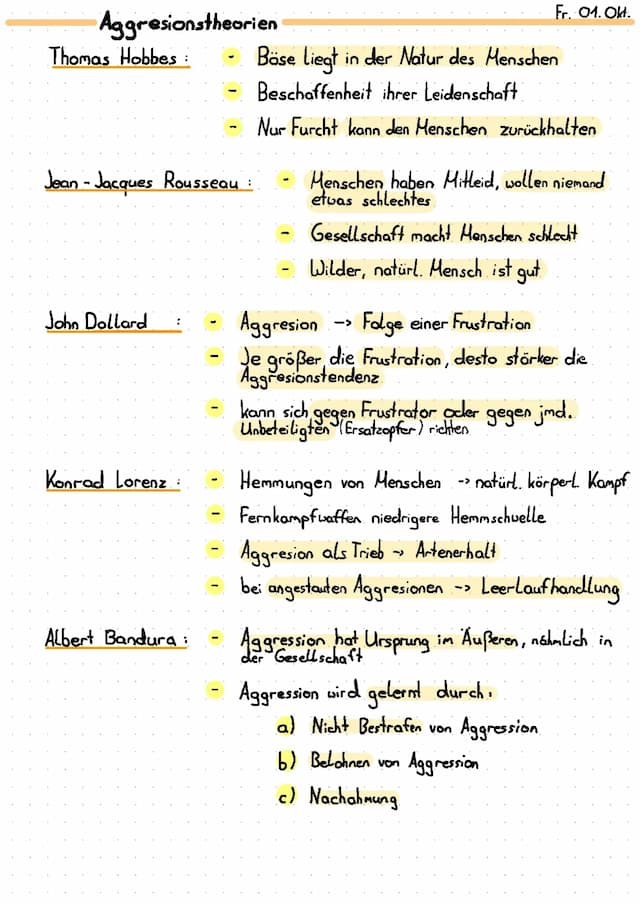 Aggresionstheorien
Fr. 01. Okt.
Thomas Hobbes : - Böse liegt in der Natur des Menschen
- Beschaffenheit ihrer Leidenschaft
- Nur Furcht kann den Menschen zurückhalten
Jean-Jacques Rousseau : - Menschen haben Mitleid, wollen niemand
etwas schlechtes
- Gesellschaft macht Menschen schlecht
- Wilder, natürl. Mensch ist gut
John Dollard : - Aggresion -> Folge einer Frustration
- Je größer die Frustration, desto störker die
Aggresionstendenz
- kann sich gegen Frustrator oder gegen jmd.
Unbeteiligten (Ersatzopfer) richten
Konrad Lorenz : - Hemmungen von Menschen -> natürl. körperl. Kampf
- Fernkampfwaffen niedrigere Hemmschwelle
- Aggresion als Trieb -> Artenerhalt
- bei angestauten Aggresionen -> Leerlaufhandlung
Albert Bandura : - Aggression hat Ursprung im Äußeren, nähmlich in
der Gesellschaft
- Aggression wird gelernt durch:
a) Nicht Bestrafen von Aggression
b) Belohnen von Aggression
c) Nachahmung